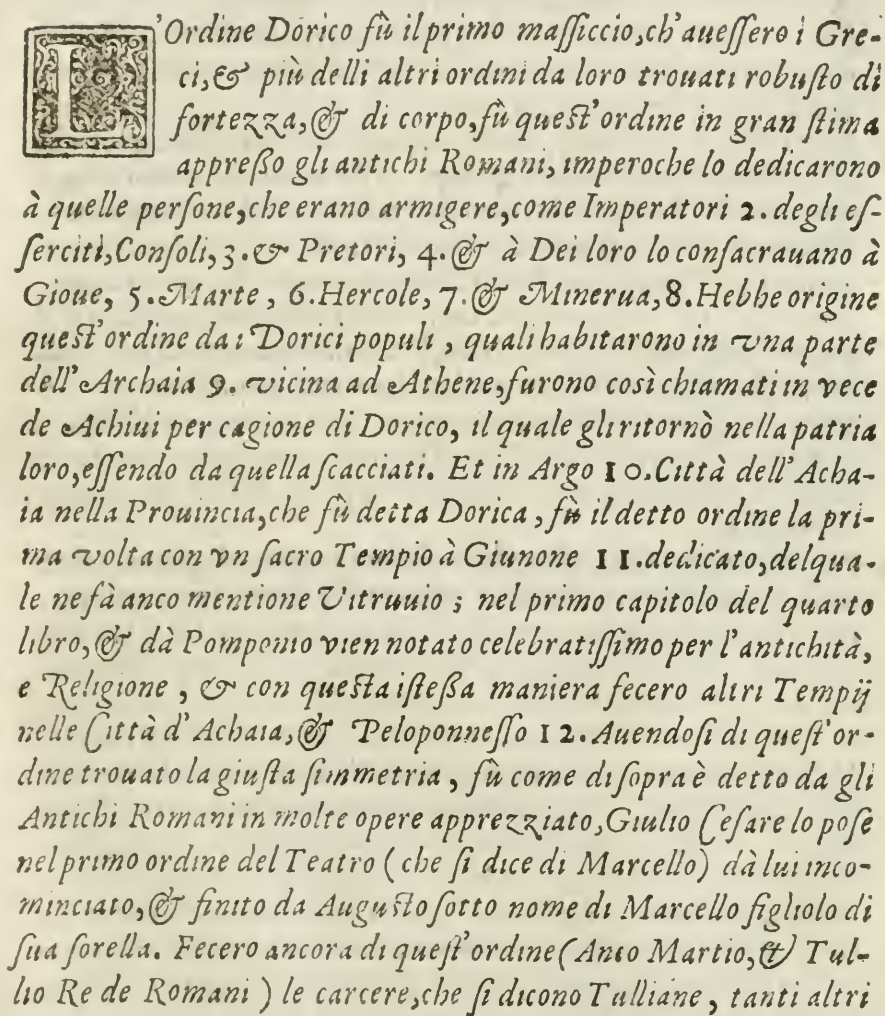 L'Ordine Dorico fù il primo maſſiccio, ch'aueſſero i Gre-
ci, & più delli altri ordini da loro trouati robuſto di
fortezza, & di corpo, fù queſt'ordine in gran ſtima
appreßo gli antichi Romani, imperoche lo dedicarono
à quelle perſone, che erano armigere, come Imperatori 2. degli eſ-
ſerciti, Conſoli, 3. & Pretori, 4. & à Dei loro lo conſacrauano à
Gioue, 5. Marte, 6. Hercole, 7. & Minerua, 8. Hebbe origine
queſt'ordine da i Dorici populi, quali habitarono in vna parte
dell'Archaia 9. vicina ad Athene, furono così chiamati in vece
de Achiui per cagione di Dorico, il quale gli ritornò nella patria
loro, eſſendo da quella ſcacciati. Et in Argo 10. Città dell'Acha-
ia nella Prouincia, che fù detta Dorica, fù il detto ordine la pri-
ma volta con vn ſacro Tempio à Giunone 11. dedicato, delqua-
le ne fà anco mentione Vitruuio; nel primo capitolo del quarto
libro, & dà Pomponio vien notato celebratiſſimo per l'antichità,
e Religione, & con queſta iſteßa maniera fecero altri Tempij
nelle Città d'Achaia, & Peloponneſſo 12. Auendoſi di queſt'or-
dine trouato la giuſta ſimmetria, fù come di ſopra è detto da gli
Antichi Romani in molte opere apprezziato, Giulio Ceſare lo poſe
nel primo ordine del Teatro (che ſi dice di Marcello) dà lui inco-
minciato, & finito da Auguſto ſotto nome di Marcello figliolo di
ſua ſorella. Fecero ancora di queſt'ordine (Anco Martio, & Tul-
lio Re de Romani) le carcere, che ſi dicono Tulliane, tanti altri